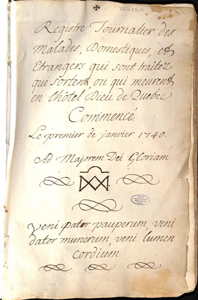 Registre Journalier des
Malades, Domestiques, et
Etrangers qui sont traitez,
qui sortent, ou qui meurent
en l'hôtel Dieu de Quebec
Commencé
Le premier de janvier 1740.
Ad Majorem Dei Gloriam
veni pater pauperum, veni
dator munerum, veni lumen
cordium